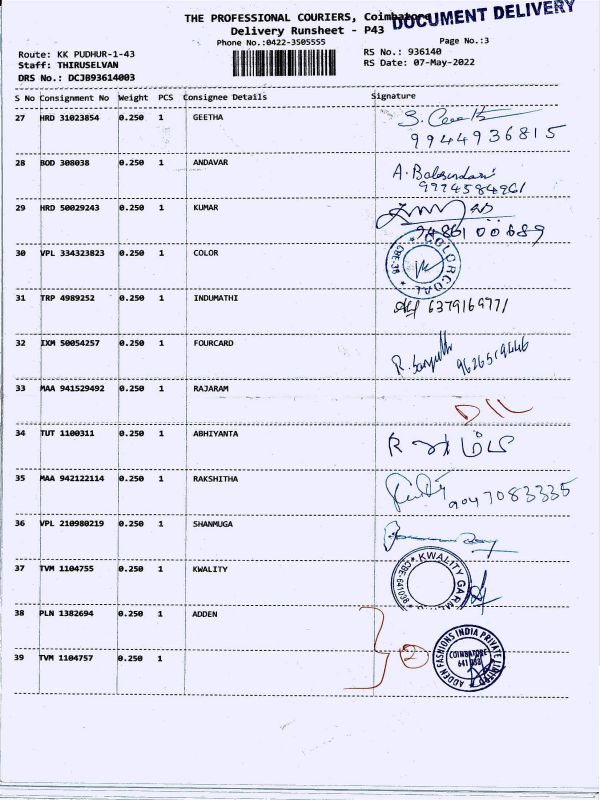 THE PROFESSIONAL COURIERS, Coimbatore
DOCUMENT DELIVERY
Delivery Runsheet - P43
Phone No.:0422-3505555
Page No.:3
Route: KK PUDHUR-1-43
RS No.: 936140
Staff: THIRUSELVAN
RS Date: 07-May-2022
DRS No.: DCJB93614003
S No Consignment No Weight PCS Consignee Details Signature
27 HRD 31023854 0.250 1 GEETHA
9944936815
28 BOD 308038 0.250 1 ANDAVAR
29 HRD 50029243 0.250 1 KUMAR
30 VPL 334323823 0.250 1 COLOR
COLORCOAL
CBE-38
31 TRP 4989252 0.250 1 INDUMATHI
6379169771
32 IXM 50054257 0.250 1 FOURCARD
33 MAA 941529492 0.250 1 RAJARAM
34 TUT 1100311 0.250 1 ABHIYANTA
35 MAA 942122114 0.250 1 RAKSHITHA
9047083335
36 VPL 210980219 0.250 1 SHANMUGA
37 TVM 1104755 0.250 1 KWALITY
KWALITY
38 PLN 1382694 0.250 1 ADDEN
2
ADDEN FASHIONS INDIA PRIVATE LIMITED
COIMBATORE
39 TVM 1104757 0.250 1